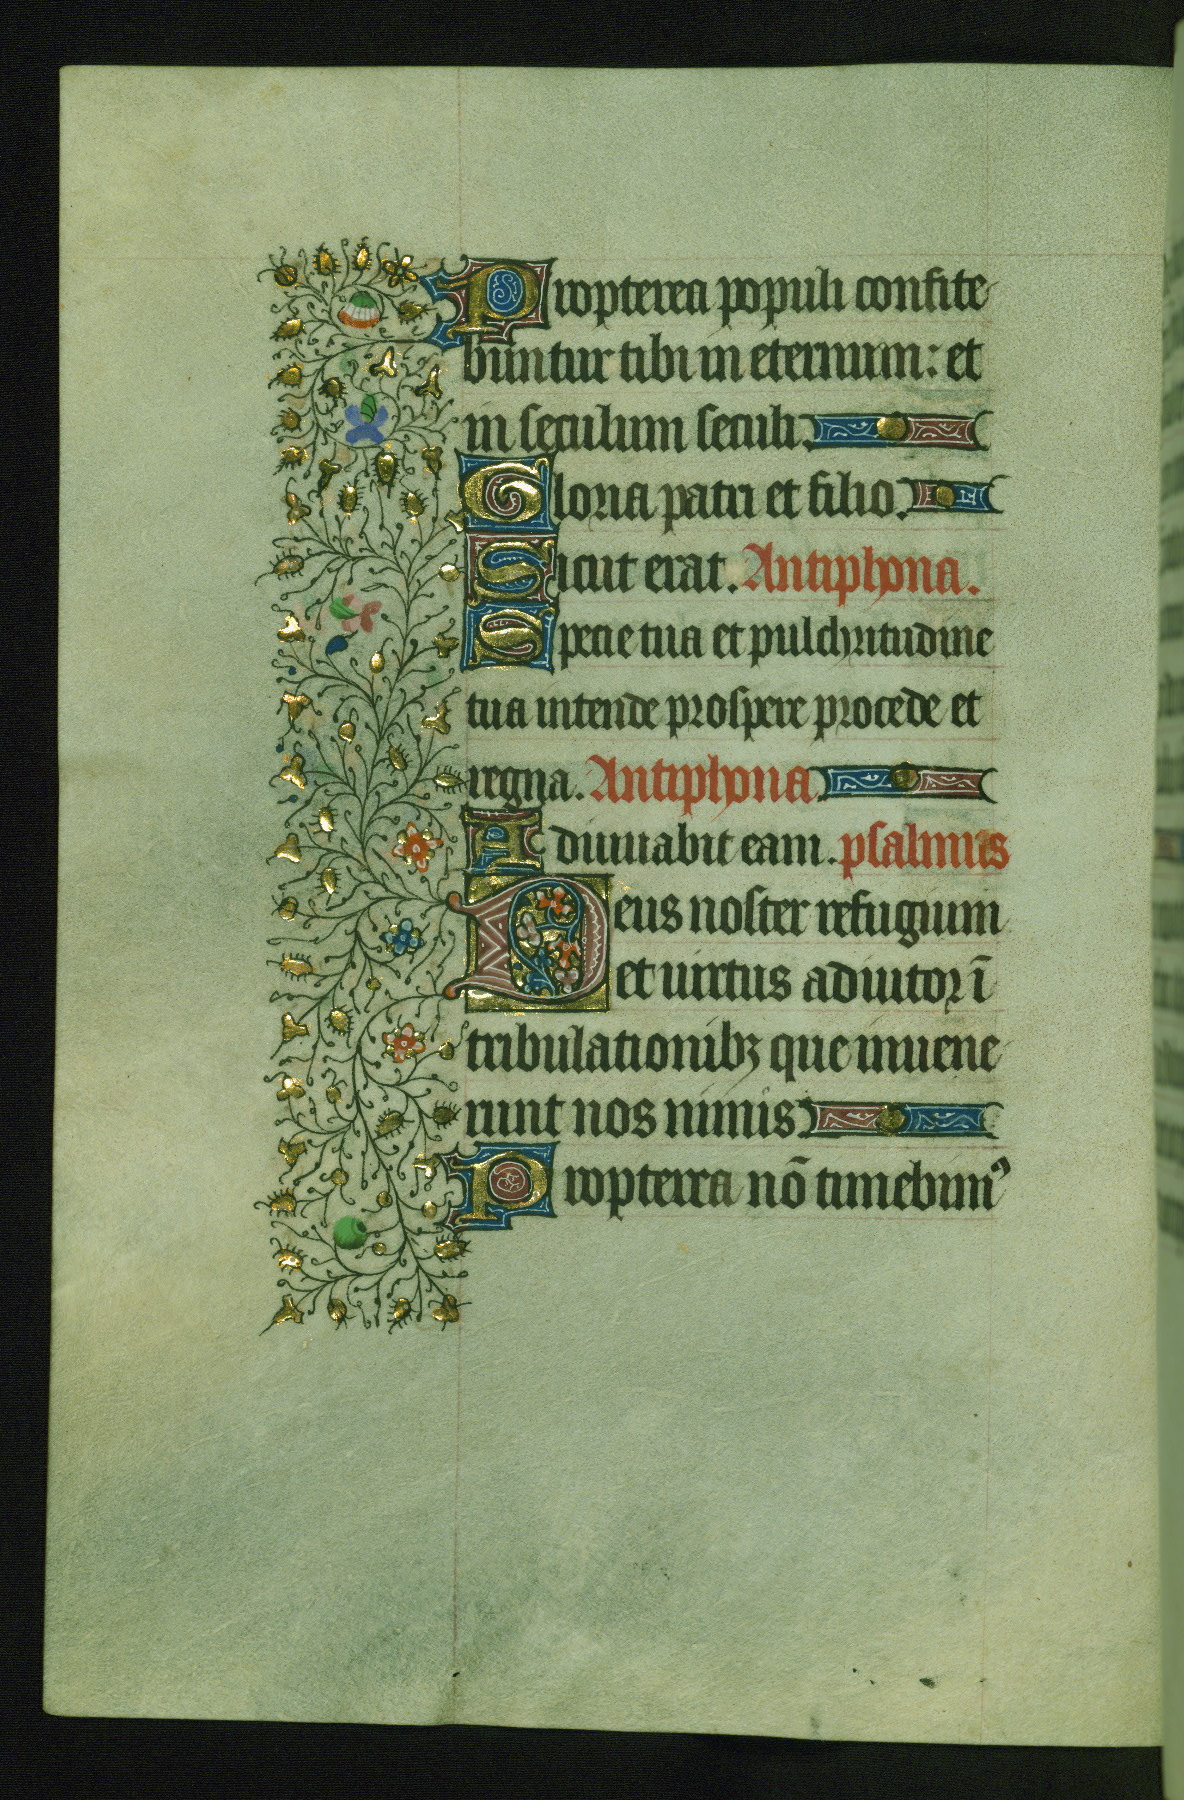 Propterea populi confite
buntur tibi in eternum: et
in seculum seculi.
Gloria patri et filio.
Sicut erat. Antiphona.
Specie tua et pulchritudine
tua intende prospere procede et
regna. Antiphona.
Adiuuabit eam. psalmus
Deus noster refugium
et uirtus adiutor ī
tribulationibꝫ que inuene
runt nos nimis
Propterea nō timebimꝰ